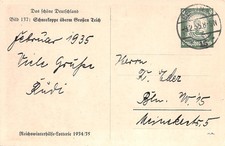 Das schöne Deutschland
Bild 137: Schneekoppe überm Großen Teich
Februar 1935
Viele Grüße
Rudi
Herrn
W. Eder
Bln. W. 15
Meinekestr. 5
Reichswinterhilfe-Lotterie 1934/35